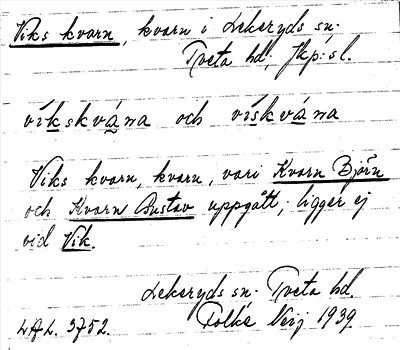 Viks kvarn, kvarn i Lekeryds sn.
Tveta hd, Jkp:sl.
víkskvána och vískvána
Viks kvarn, kvarn, vari Kvarn Björn
och Kvarn Gustav uppgått; ligger ej
vid Vik.
Lekeryds sn. Tveta hd.
1939.
LAL. 3752.